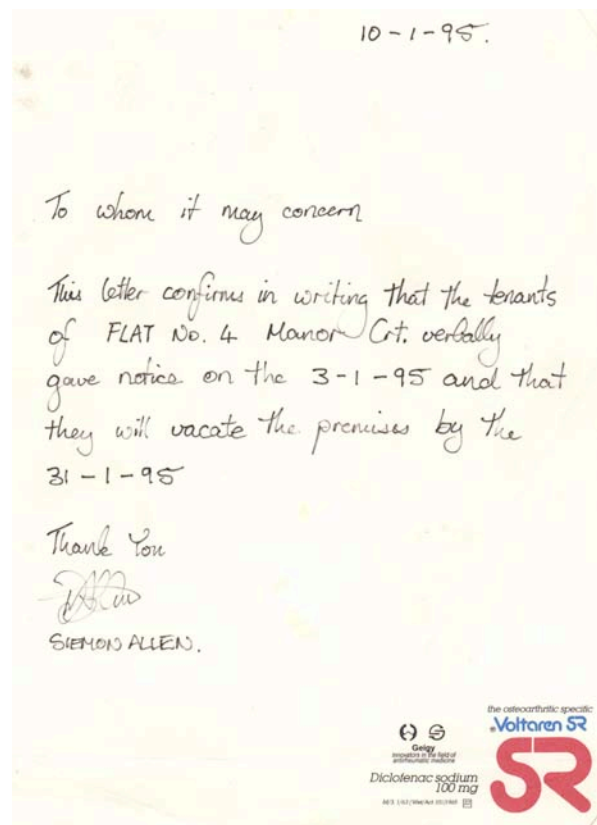 10-1-95.
To whom it may concern
This letter confirms in writing that the tenants
of FLAT No. 4 Manor Crt. verbally
gave notice on the 3-1-95 and that
they will vacate the premises by the
31-1-95
Thank You
SIEMON ALLEN.
the osteoarthritic specific
®Voltaren SR
SR
Geigy
innovators in the field of
antirheumatic medicine
Diclofenac sodium
100 mg